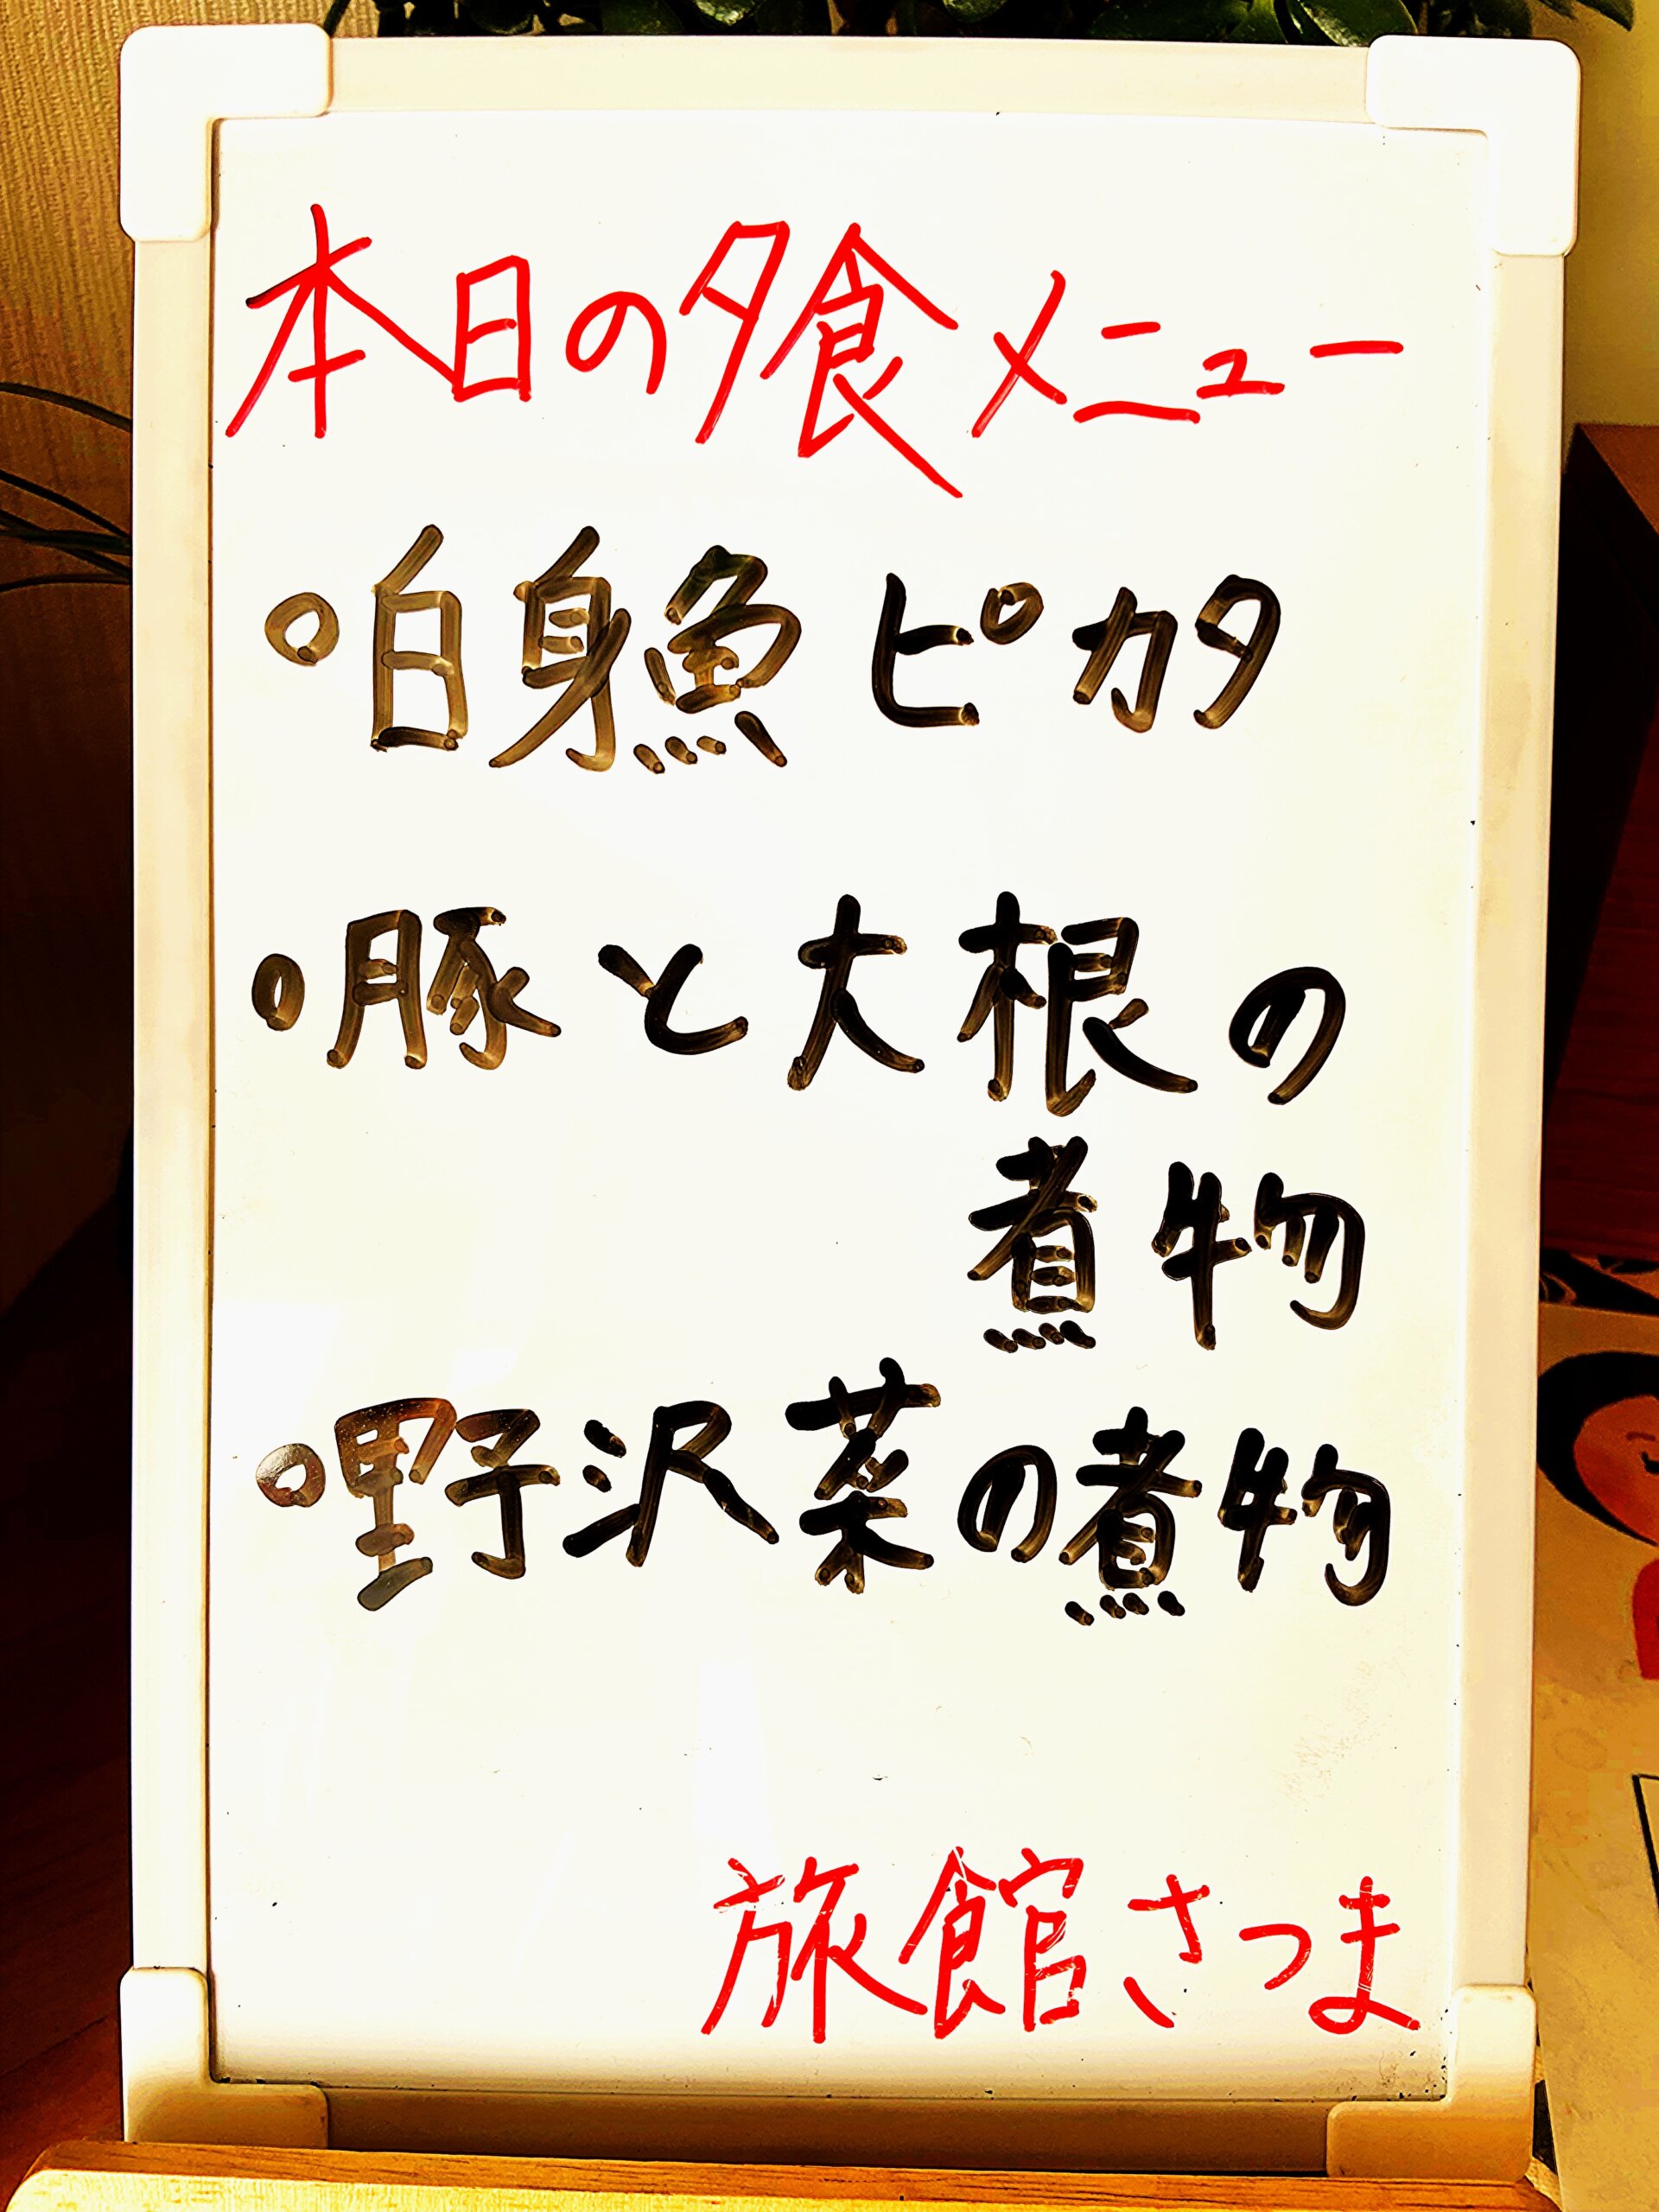 本日の夕食メニュー
○白身魚ピカタ
○豚と大根の
煮物
○野沢菜の煮物
旅館さつま